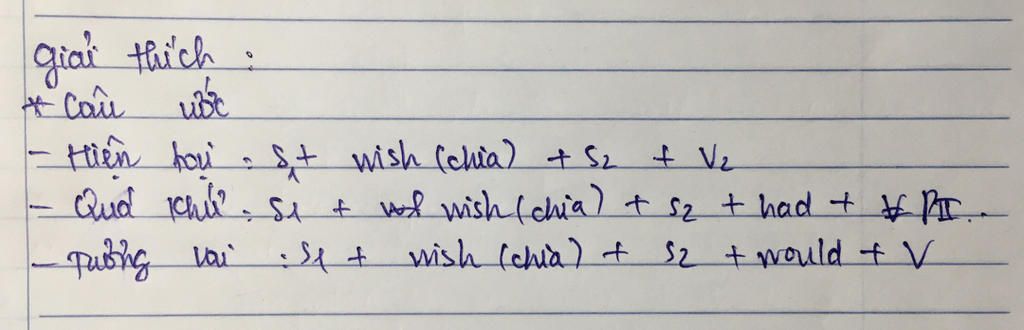 Giải thích :
* Câu ước
- Hiện tại : S1 + wish (chia) + S2 + V2
- Quá khứ : S1 + wish (chia) + S2 + had + PII..
- Tương lai : S1 + wish (chia) + S2 + would + V